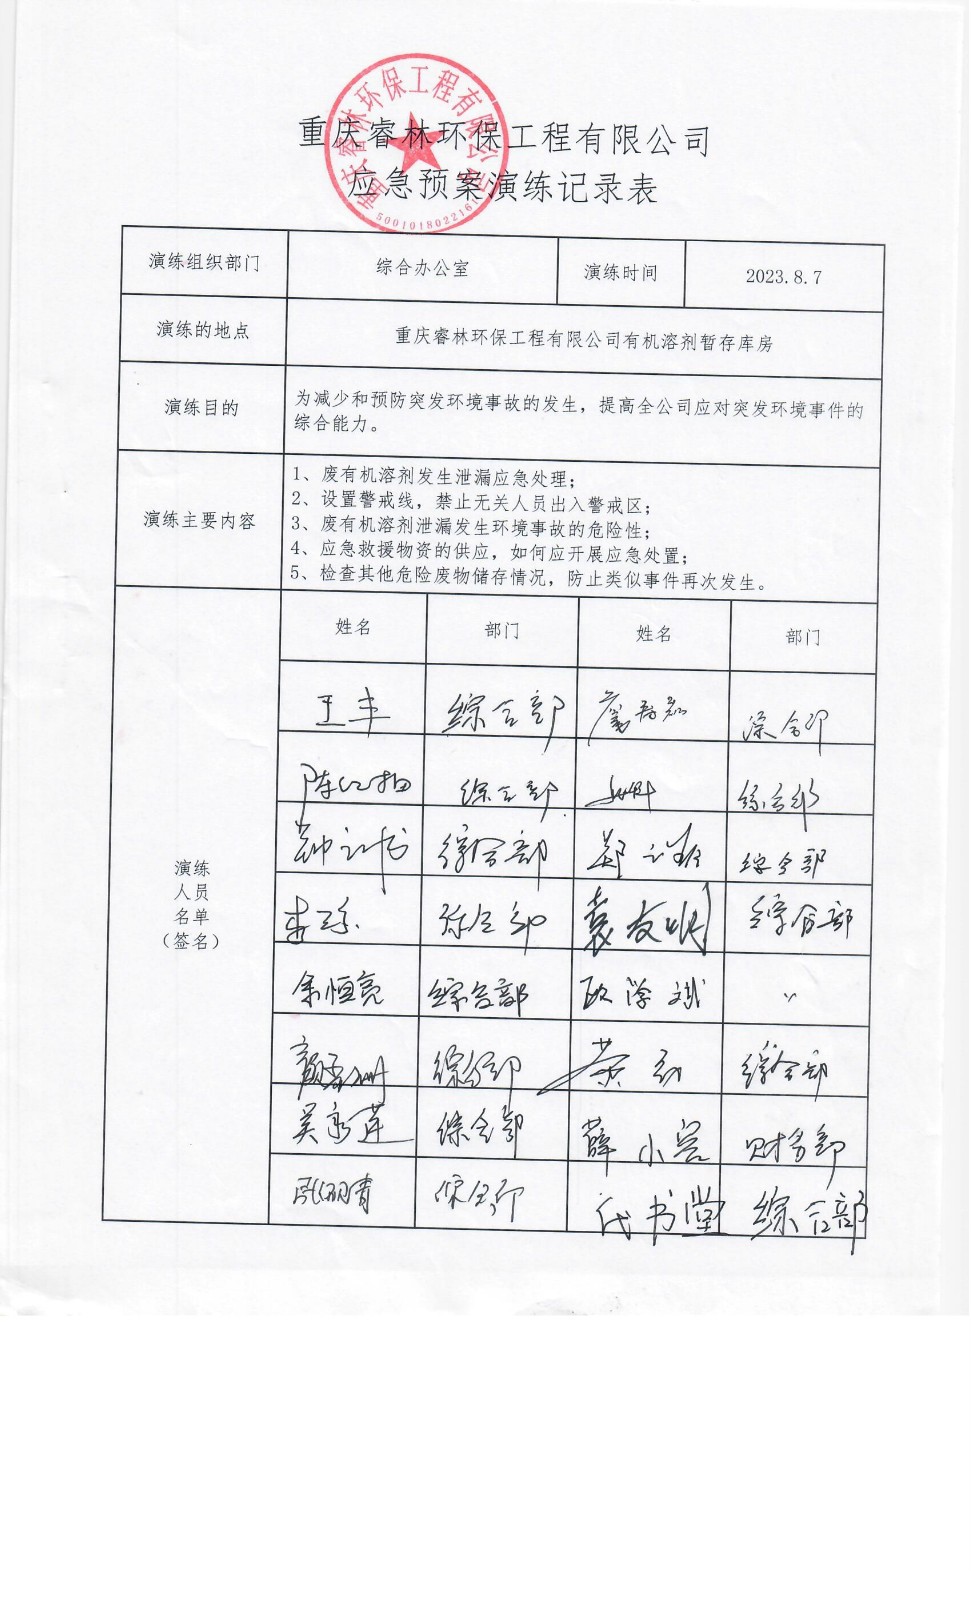 重庆睿林环保工程有限公司
应急预案演练记录表
重庆睿林环保工程有限公司
5001018022161
演练组织部门 综合办公室 演练时间 2023.8.7
演练的地点 重庆睿林环保工程有限公司有机溶剂暂存库房
演练目的 为减少和预防突发环境事故的发生，提高全公司应对突发环境事件的
综合能力。
演练主要内容
1、废有机溶剂发生泄漏应急处理；
2、设置警戒线，禁止无关人员出入警戒区；
3、废有机溶剂泄漏发生环境事故的危险性；
4、应急救援物资的供应，如何应开展应急处置；
5、检查其他危险废物储存情况，防止类似事件再次发生。
演练
人员
名单
（签名）
姓名 部门 姓名 部门
王丰 综合部 综合部
综合部 综合部
综合部 郑 综合部
李 综合部 袁友明 综合部
余恒亮 综合部 欧学斌 〃
颜 综合部 综合部
吴永莲 综合部 薛小容 财务部
张丽青 综合部 代书堂 综合部